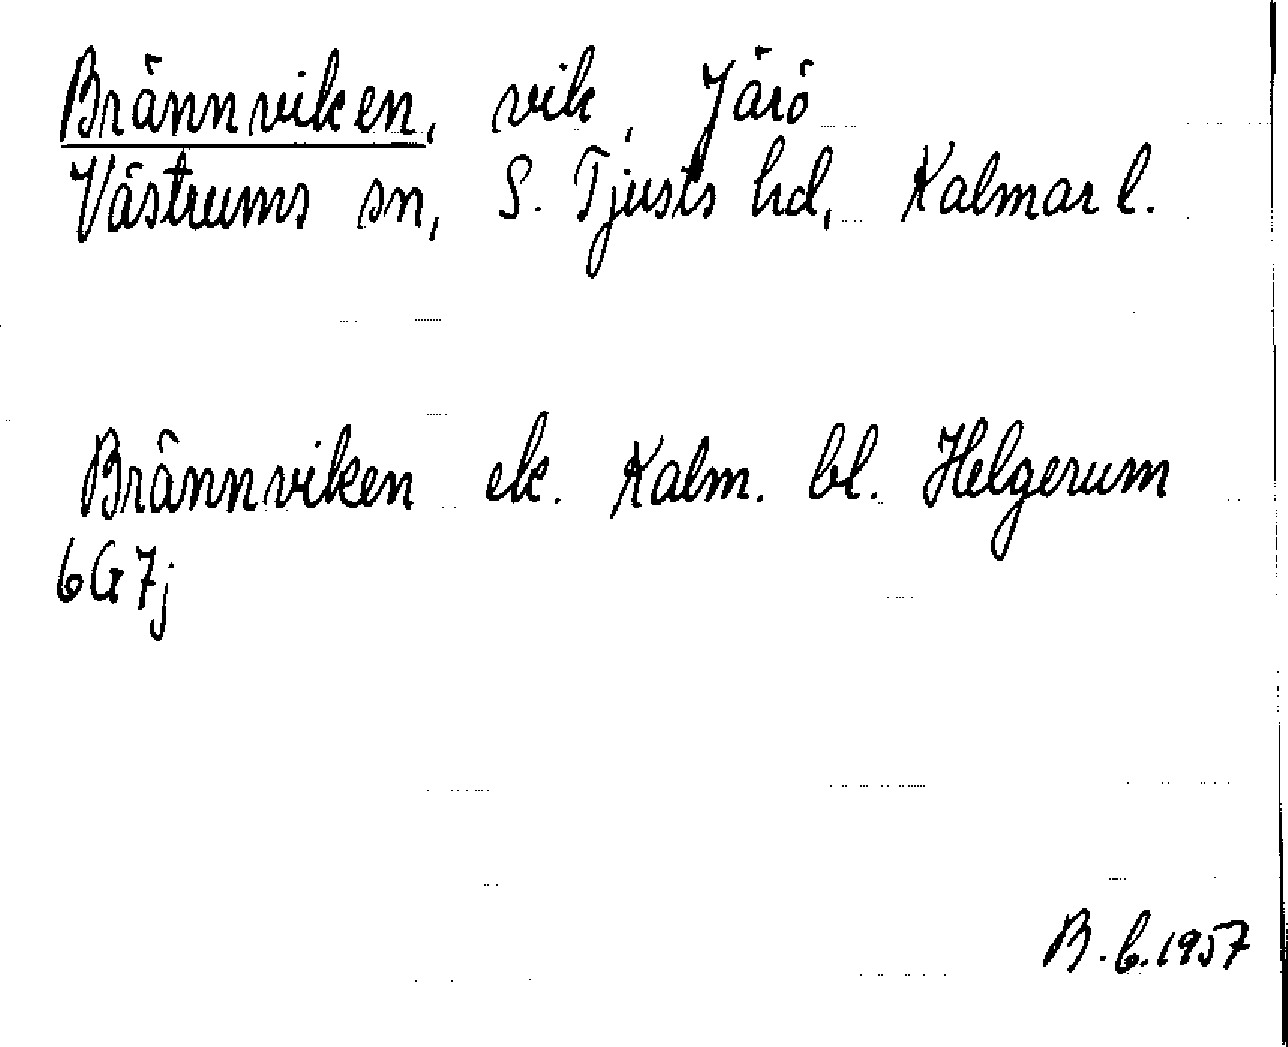 Brännviken, vik, Järö
Västrums sn, S. Tjusts hd, Kalmar l.
Brännviken ek. Kalm. bl. Helgerum
6G7j
B.b.1957